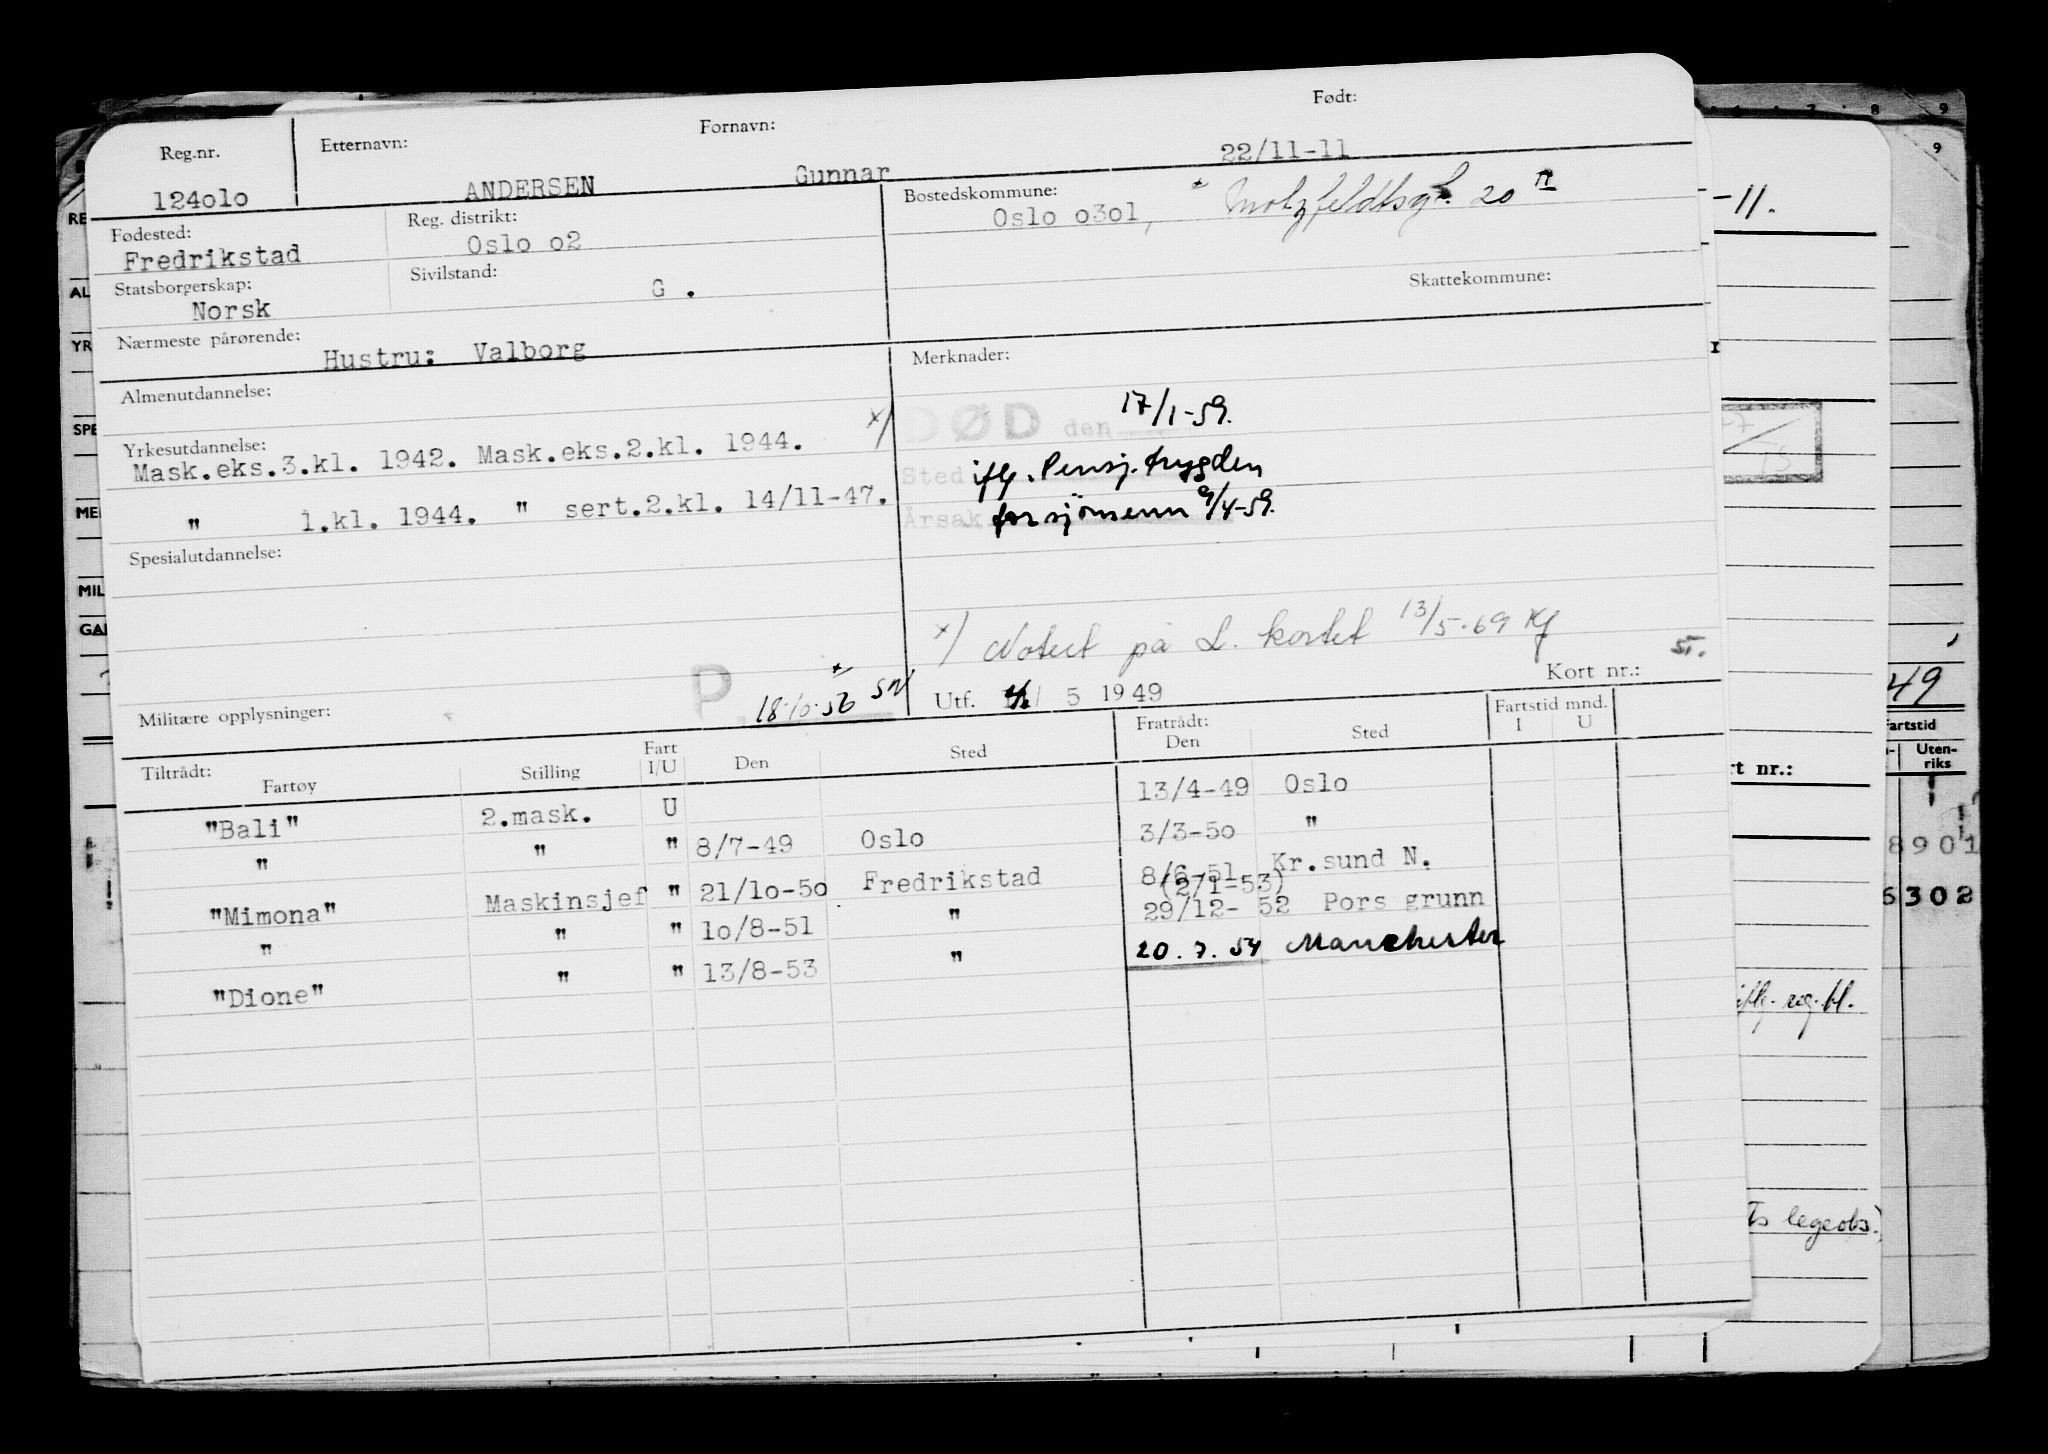 Reg.nr. Etternavn: Fornavn: Født:
124olo ANDERSEN Gunnar 22/11-11
Fødested: Reg. distrikt: Bostedskommune:
Fredrikstad Oslo o2 Oslo o3ol, Motzfeldtsgt. 20
Statsborgerskap: Sivilstand: Skattekommune:
Norsk G .
Nærmeste pårørende: Merknader:
Hustru: Valborg
Almenutdannelse:
DØD den 17/1-59.
Yrkesutdannelse: x/
Mask.eks.3.kl. 1942. Mask.eks.2.kl. 1944.
Sted iflg. Pensj.trygden
" 1.kl. 1944. " sert.2.kl. 14/11-47.
Årsak for sjömenn 9/4-59.
Spesialutdannelse:
x/ Notert på L. kortet 13/5-69 Kf
P. 18.10.56 SN
Militære opplysninger: Utf. 5 1949 Kort nr.: 5.
Tiltrådt: Fratrådt: Fartstid mnd.
Fartøy Stilling Fart I/U Den Sted Den Sted I U
"Bali" 2.mask. U 13/4-49 Oslo
" " " 8/7-49 Oslo 3/3-5o "
"Mimona" Maskinsjef " 21/lo-5o Fredrikstad 8/6-51 Kr.sund N.
(2/1-53)
" " " lo/8-51 " 29/12- 52 Pors grunn
"Dione" " " 13/8-53 " 20.7.54 Manchester
9
-11.
RE
AL
YR
SPE
ME
MIL
GA
49
artstid
Uten-
riks
rt nr.:
8901
6302
iflg. reg.bl.
ts legeobs.